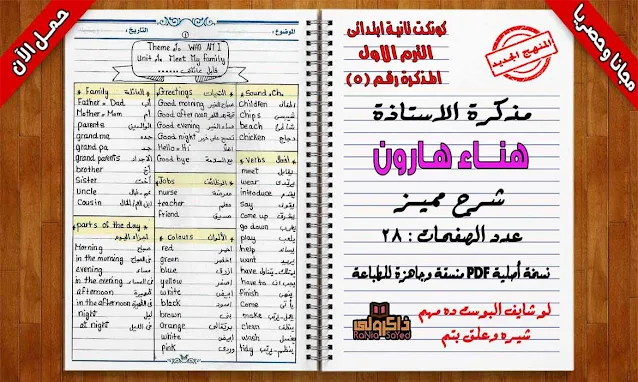 حمل الآن
مجانا وحصريا
الموضوع:
التاريخ:
Theme 1: WHO AM I
Unit 1: Meet My family
قابل عائلتي
Family العائلة
Father = Dad أب
Mother = Mom أم
parents الوالدين
grandma جدة
grand pa جد
grand parents الأجداد
brother أخ
Sister أخت
Uncle عم - خال
Cousin
parts of the day
أجزاء اليوم
Morning صباح
in the morning في الصباح
evening مساء
in the evening في المساء
afternoon
in the afternoon
night ليل
at night في الليل
Greetings التحيات
Good morning صباح الخير
Good afternoon
Good evening مساء الخير
Good night تصبح على خير
Hello = Hi أهلا
Good bye مع السلامة
Jobs الوظائف
nurse ممرضة
teacher معلم
friend صديق
colours الألوان
red احمر
green اخضر
blue ازرق
yellow اصفر
white ابيض
black اسود
brown بنى
orange برتقالى
white ابيض
pink وردى
Sound Ch
Children اطفال
Chips شيبس
beach شاطئ
chicken دجاج
verbs افعال
meet يقابل
wear يرتدى
introduce يقدم
say يقول
come up
go down
play يلعب
help يساعد
want يريد
have
have to
finish ينهى
Come يأتى
make
clean ينظف
wash يغسل
tidy
كونكت ثانية ابتدائى
الترم الاول
المذكرة رقم (٥)
المنهج الجديد
مذكرة الاستاذة
هناء هارون
شرح مميز
عدد الصفحات : ٢٨
نسخة أصلية PDF منسقة وجاهزة للطباعة
لو شايف البوست ده مهم
شيره وعلق بتم
ذاكرولى
RaNia SaYed